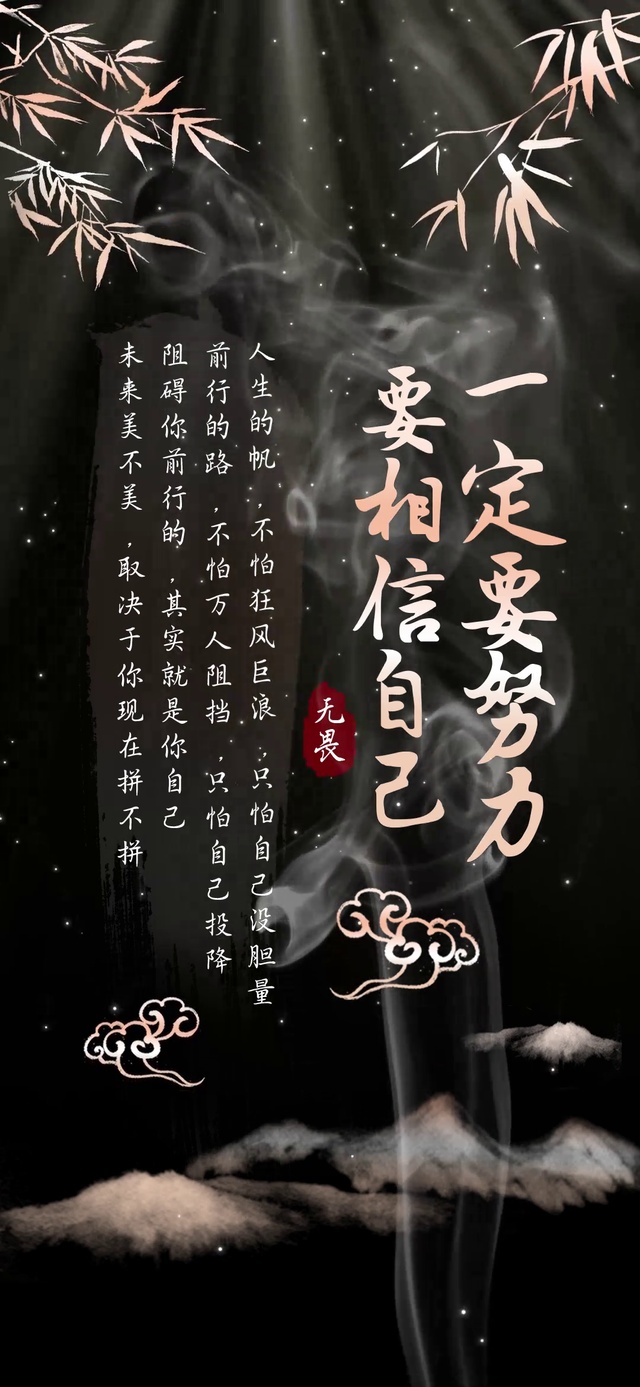 一定要努力
要相信自己
无畏
人生的帆,不怕狂风巨浪,只怕自己没胆量
前行的路,不怕万人阻挡,只怕自己投降
阻碍你前行的,其实就是你自己
未来美不美,取决于你现在拼不拼